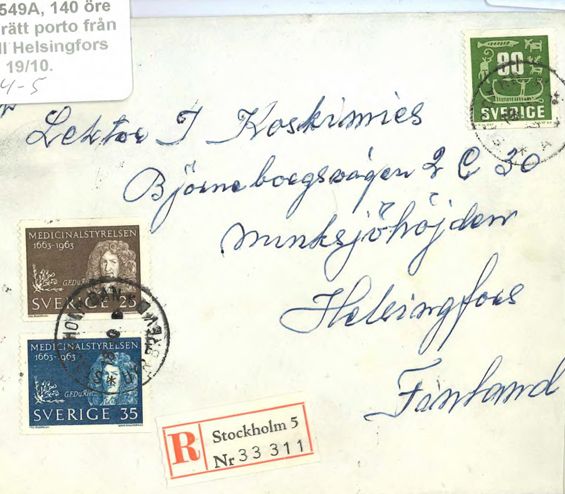 549A, 140 öre
rätt porto från
ll Helsingfors
19/10.
4-5
80
SVERIGE
Lektor I Koskimies
Björneborgsvägen 2 C 30
Munksjöhöjden
Helsingfors
Finland
MEDICINALSTYRELSEN
1663-1963
G.F.Du Rietz
SVERIGE 25
MEDICINALSTYRELSEN
1663-1963
G.F.Du Rietz
SVERIGE 35
R Stockholm 5
Nr 33 311